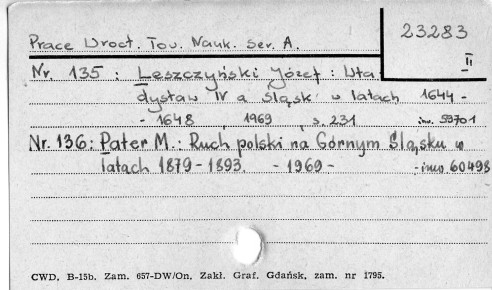 23283
II
Prace Wrocł. Tow. Nauk. Ser. A.
Nr. 135 : Leszczyński Józef : Wła-
dysław IV a Śląsk w latach 1644 -
- 1648 , 1969 , s. 231 inw. 59701
Nr. 136 : Pater M. : Ruch polski na Górnym Śląsku w
latach 1879 - 1893. - 1969 - - inw. 60498
CWD. B-15b. Zam. 657-DW/On. Zakł. Graf. Gdańsk, zam. nr 1795.